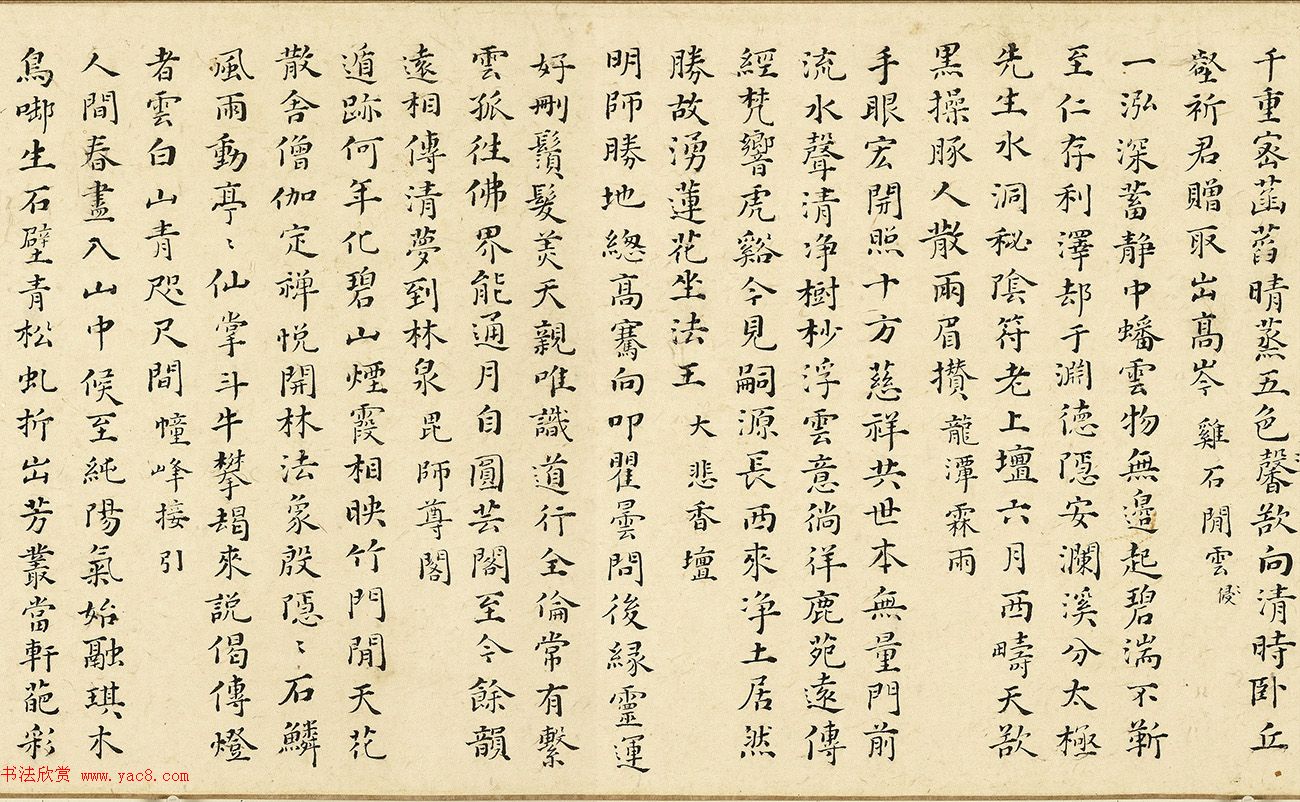 千重密菡萏晴蒸五色馨欲向清時卧丘
壑祈君贈取出高岑　雞石閒雲
一泓深蓄静中蟠雲物無邊起碧湍不靳
至仁存利澤却于淵德隠安瀾溪分太極
先生水洞秘陰符老上壇六月西疇天欲
黒操豚人散兩眉攢　龍潭霖雨
手眼宏開照十方慈祥共世本無量門前
流水聲清净樹杪浮雲意徜徉鹿苑遠傳
經梵響虎谿今見嗣源長西來净土居然
勝故湧蓮花坐法王　大悲香壇
明師勝地緫高騫向叩瞿曇問後縁靈運
好刪鬚髮羙天親唯識道行全倫常有繫
雲孤徃佛界能通月自圓芸閣至今餘韻
遠相傳清夢到林泉　毘師尊閣
遁跡何年化碧山煙霞相映竹門閒天花
散舍僧伽定禅悦開林法象殷隠〻石鱗
風雨動亭〻仙掌斗牛攀朅來説偈傳燈
者雲白山青咫尺間　幢峰接引
人間春盡入山中候至純陽氣始融琪木
鳥啣生石壁青松虬折出芳叢當軒葩彩
书法欣赏 www.yac8.com